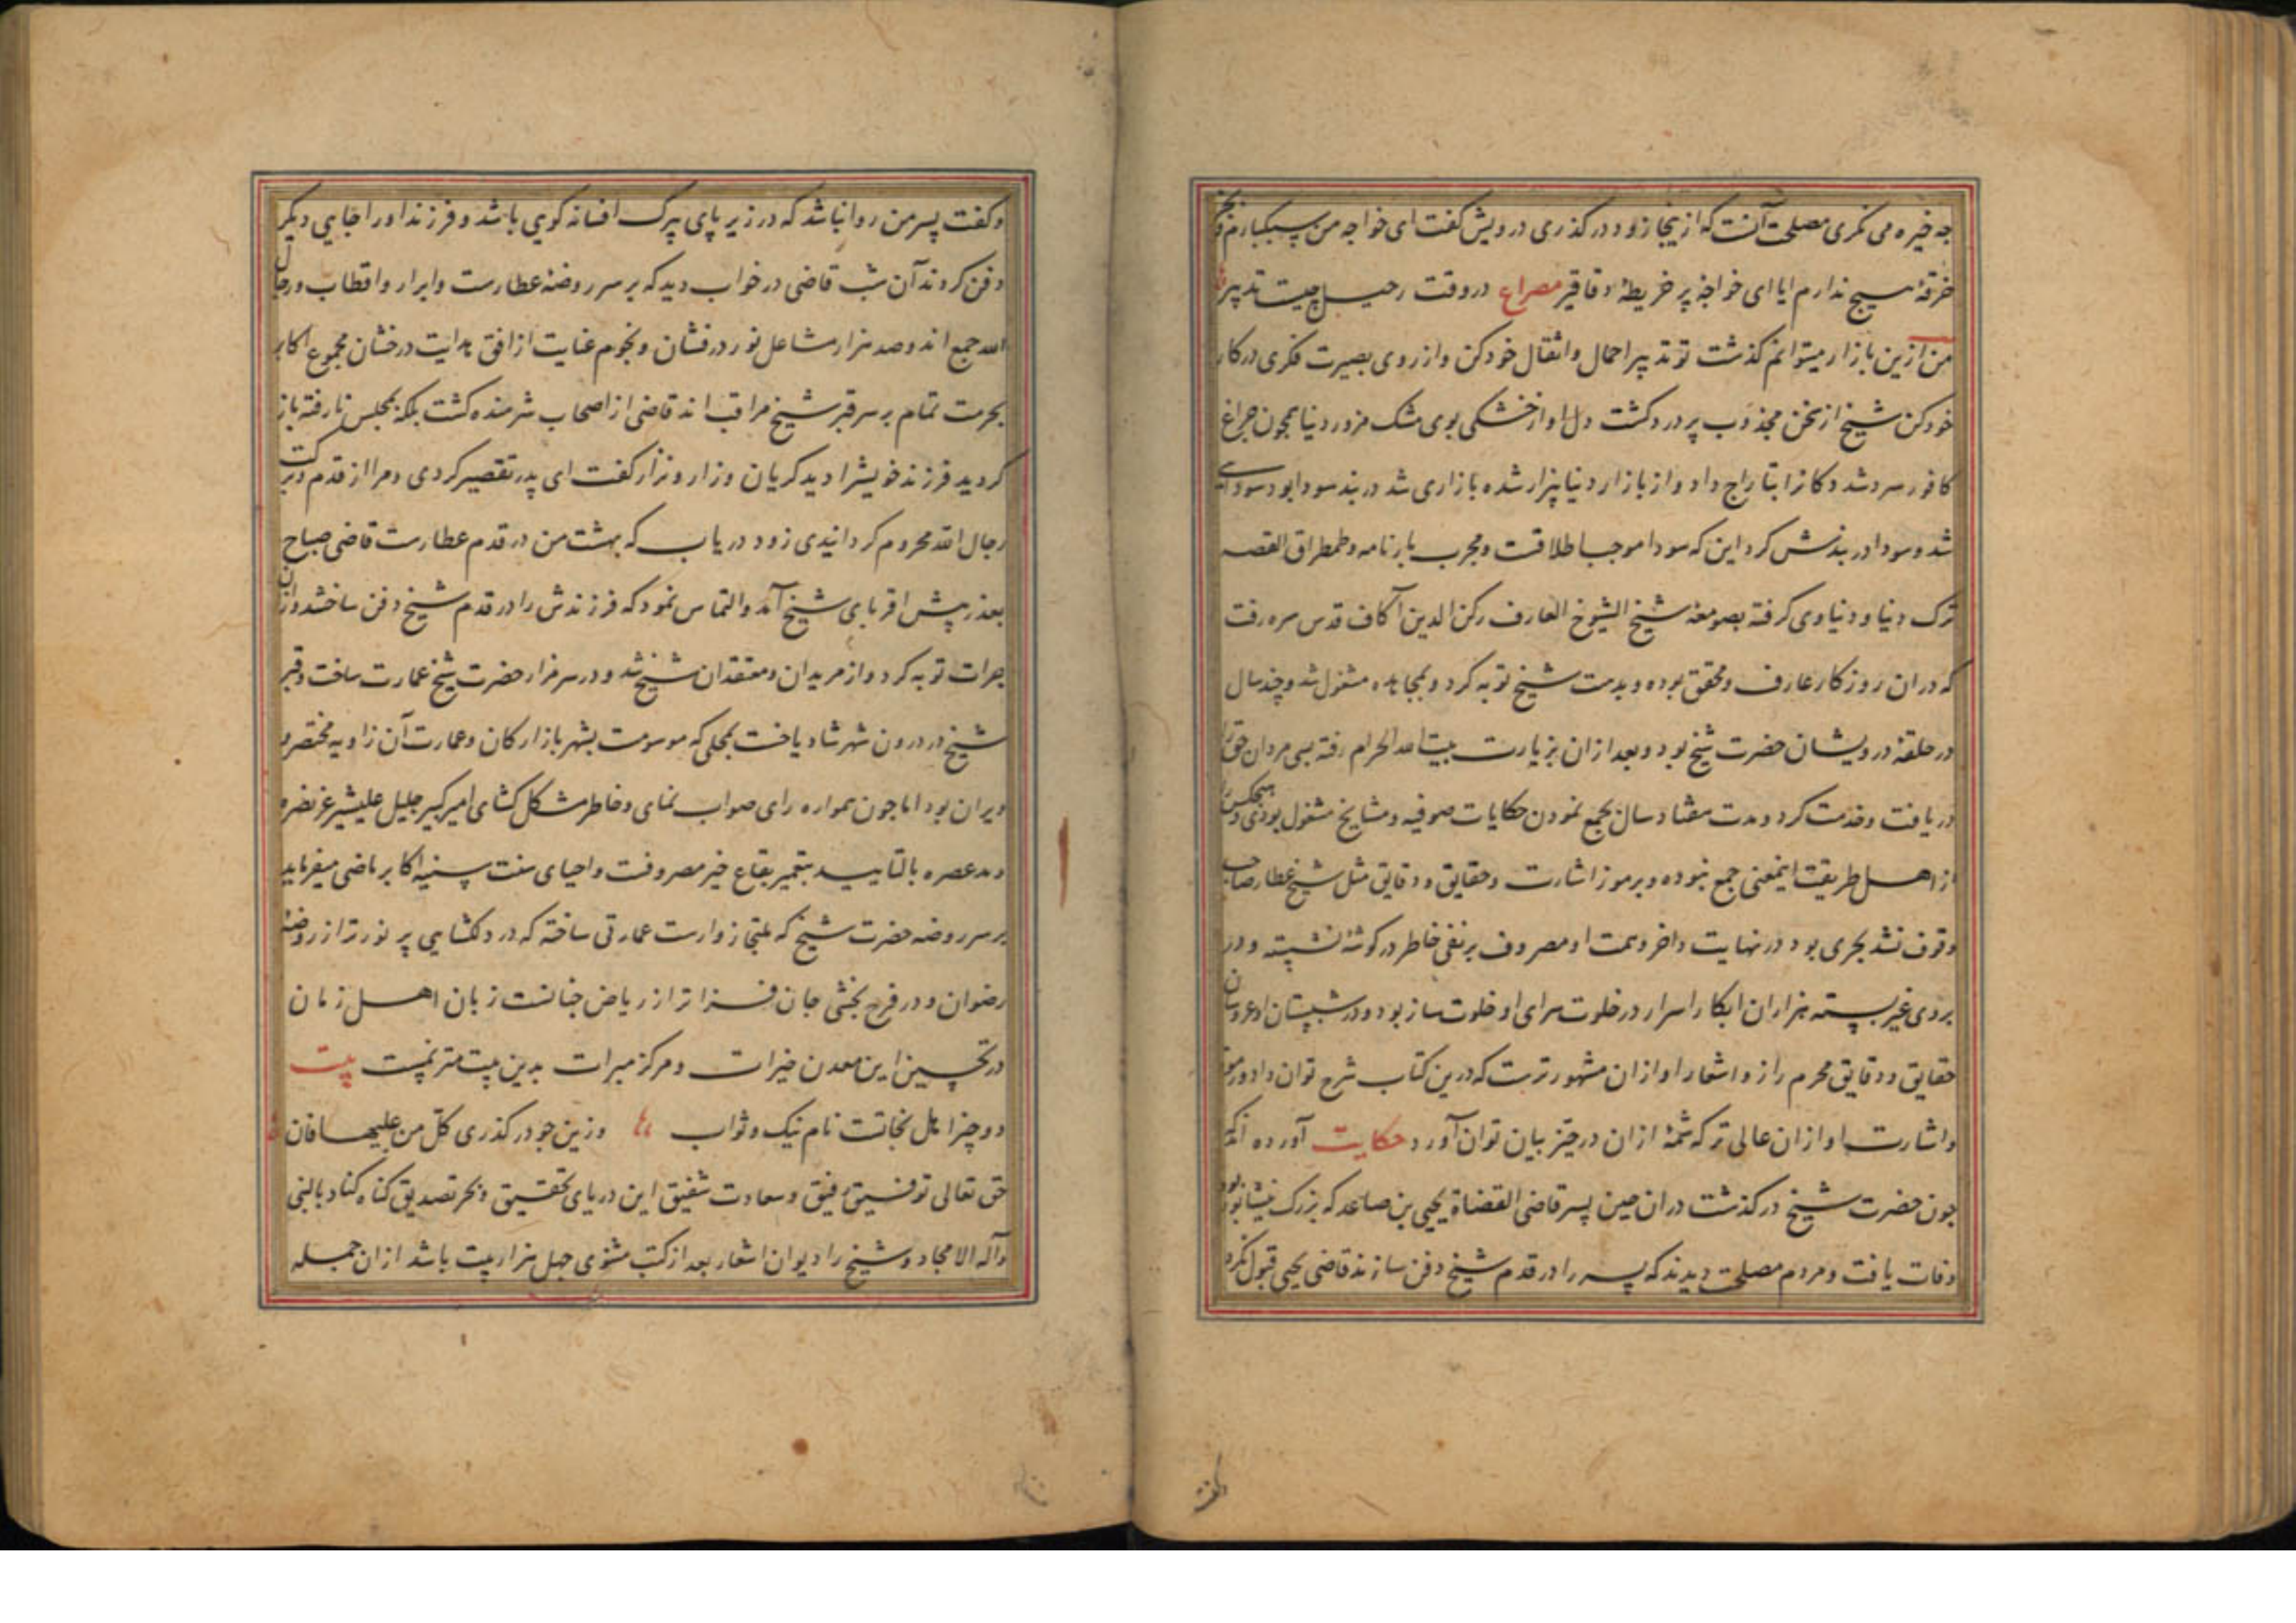 چه خیره می نکری مصلحت آنست که ازینجا زود درکذری درویش کفت ای خواجه من سبکبارم و بجز
خرقهٔ هیچ ندارم اما ای خواجهٔ پر خریطهٔ عقاقیر مصراع در وقت رحیل چیست تدبیر
من ازین بازار میتوانم کذشت تو تدبیر احمال و اثقال خود کن و از روی بصیرت فکری در کار
خود کن شیخ از سخن مجذوب پر درد کشت دل او از خشکی بوی مشک مزور دنیا همچون چراغ
کافور سرد شد دکانرا بتاراج داد و از بازار دنیا بیزار شده بازاری شد در بند سودا بود سودایی
شد و سودا در بندش کرد این که سودا موجب اطلاقست و مجرب بارنامه و طمطراق القصه
ترک دنیا و دنیاوی کرفته بصومعهٔ شیخ الشیوخ العارف رکن الدین آکاف قدس سره رفت
که دران روزکار عارف و محقق بوده و بدست شیخ توبه کرد و بمجاهده مشغول شد و چند سال
در حلقهٔ درویشان حضرت شیخ بود و بعد ازان بزیارت بیت الله الحرام رفته بسی مردان حق را
دریافت و خدمت کرد و مدت هفتاد سال بجمع نمودن حکایات صوفیه و مشایخ مشغول بودی و هیچکس
از اهل طریقت اینمعنی جمع ننموده و بر موز اشارت و حقایق و دقایق مثل شیخ عطار صاحب
وقوف نشد بحری بود در نهایت واخر وهمت او مصروف بر نفی خاطر در کوشهٔ نشسته و در
بروی غیر بسته هزاران ابکار اسرار در خلوت سرای او خلوت ساز بود و در شبستان او عروسان
حقایق و دقایق محرم راز و اشعار او ازان مشهورترست که درین کتاب شرح توان داد و رموز
و اشارت او ازان عالی تر که شمهٔ ازان در حیّز بیان توان آورد حکایت آورده اند که
چون حضرت شیخ درکذشت دران حین پسر قاضی القضاة یحیی بن صاعد که بزرک نیشابور بود
وفات یافت و مردم مصلحت دیدند که پسر را در قدم شیخ دفن سازند قاضی یحیی قبول نکرد
و کفت پسر من روا نباشد که در زیر پای پیرک افسانه کویی باشد و فرزند او را جایی دیکر
دفن کردند آن شب قاضی در خواب دید که بر سر روضهٔ عطارست و ابرار و اقطاب و رجال
الله جمع اند و صد هزار مشاعل نور درفشان و نجوم عنایت از افق هدایت درخشان مجموع اکابر
بحرمت تمام بر سر قبر شیخ مراقب اند قاضی از اصحاب شرمنده کشت بلکه بمجلس نارفته باز
کردید فرزند خویشرا دید کریان و زار و نزار کفت ای پدر تقصیر کردی و مرا از قدم و برکت
رجال الله محروم کردانیدی زود دریاب که بهشت من در قدم عطارست قاضی صباح
بعذر پیش اقربای شیخ آمد والتماس نمود که فرزندش را در قدم شیخ دفن ساختند و ازان
جرات توبه کرد و از مریدان و معتقدان شیخ شد و در سر مزار حضرت شیخ عمارت ساخت و قبر
شیخ در درون شهر شادیاخست بمحلی که موسومست بشهر بازارکان و عمارت آن زاویه مختصر و
ویران بود اما چون همواره رای صواب نمای و خاطر مشکل کشای امیر کبیر جلیل علیشیر عز نصره
ومد عصره بالتایید بتعمیر بقاع خیر مصروفست و احیای سنت سنیه اکابر ماضی میفرماید
بر سر روضه حضرت شیخ که ملتجا زوارست عمارتی ساخته که در دلکشایی پر نورتر از روضهٔ
رضوان و در فرح بخشی جان فزاتر از ریاض جنانست زبان اهل زمان
در تحسین این معدن خیرات و مرکز مبرات بدین بیت مترنمست بیت
دو چیز اهل نجاتست نام نیک و ثواب وزین جو درکذری کل من علیها فان
حق تعالی توفیق رفیق و سعادت شفیق این دریای تحقیق و بحر تصدیق کناد بالنبی
وآله الامجاد و شیخ را دیوان اشعار بعد از کتب مثنوی چهل هزار بیت باشد ازان جمله